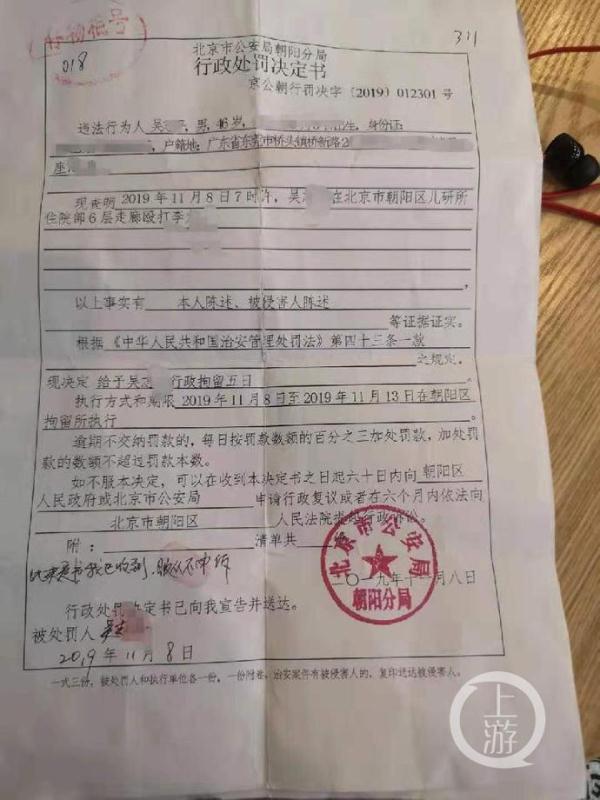 018
311
北京市公安局朝阳分局
行政处罚决定书
京公朝行罚决字〔2019〕012301号
违法行为人 吴 男, 46岁, 出生, 身份证
户籍地: 广东省东莞市桥头镇桥新路2
座
现查明 2019年11月8日7时许, 吴 在北京市朝阳区儿研所
住院部6层走廊殴打李
以上事实有 本人陈述、被侵害人陈述
等证据证实。
根据 《中华人民共和国治安管理处罚法》第四十三条一款
之规定,
现决定 给予吴 行政拘留五日
执行方式和期限 2019年11月8日至2019年11月13日在朝阳区
拘留所执行
逾期不交纳罚款的, 每日按罚款数额的百分之三加处罚款, 加处罚
款的数额不超过罚款本数。
如不服本决定, 可以在收到本决定书之日起六十日内向 朝阳区
人民政府或北京市公安局 申请行政复议或者在六个月内依法向
北京市朝阳区 人民法院提起行政诉讼。
附: 清单共
北京市公安局
朝阳分局
二〇一九年十一月八日
行政处罚决定书已向我宣告并送达。
被处罚人 吴
2019年11月8日
一式三份, 被处罚人和执行单位各一份, 一份附卷, 治安案件有被侵害人的, 复印送达被侵害人。
上游